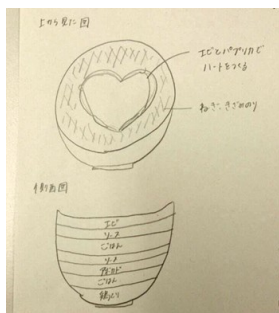 上から見た図
エビとパプリカで
ハートをつくる
ねぎ、きざみのり
断面図
エビ
ソース
ごはん
ソース
アボカド
ごはん